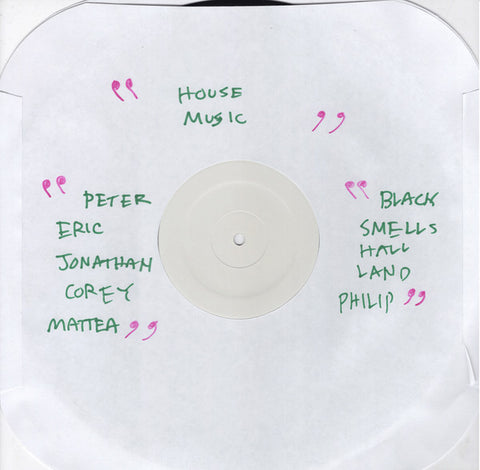 " HOUSE
MUSIC "
" PETER
ERIC
JONATHAN
COREY
MATTEA "
" BLACK
SMELLS
HALL
LAND
PHILIP "